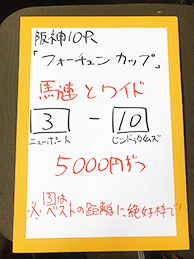 阪神10R
「フォーチュンカップ」
馬連とワイド
3 - 10
ニューポート ビンドゥタイムズ
5000円ずつ
※ 3は
ベストの距離に絶好枠で!